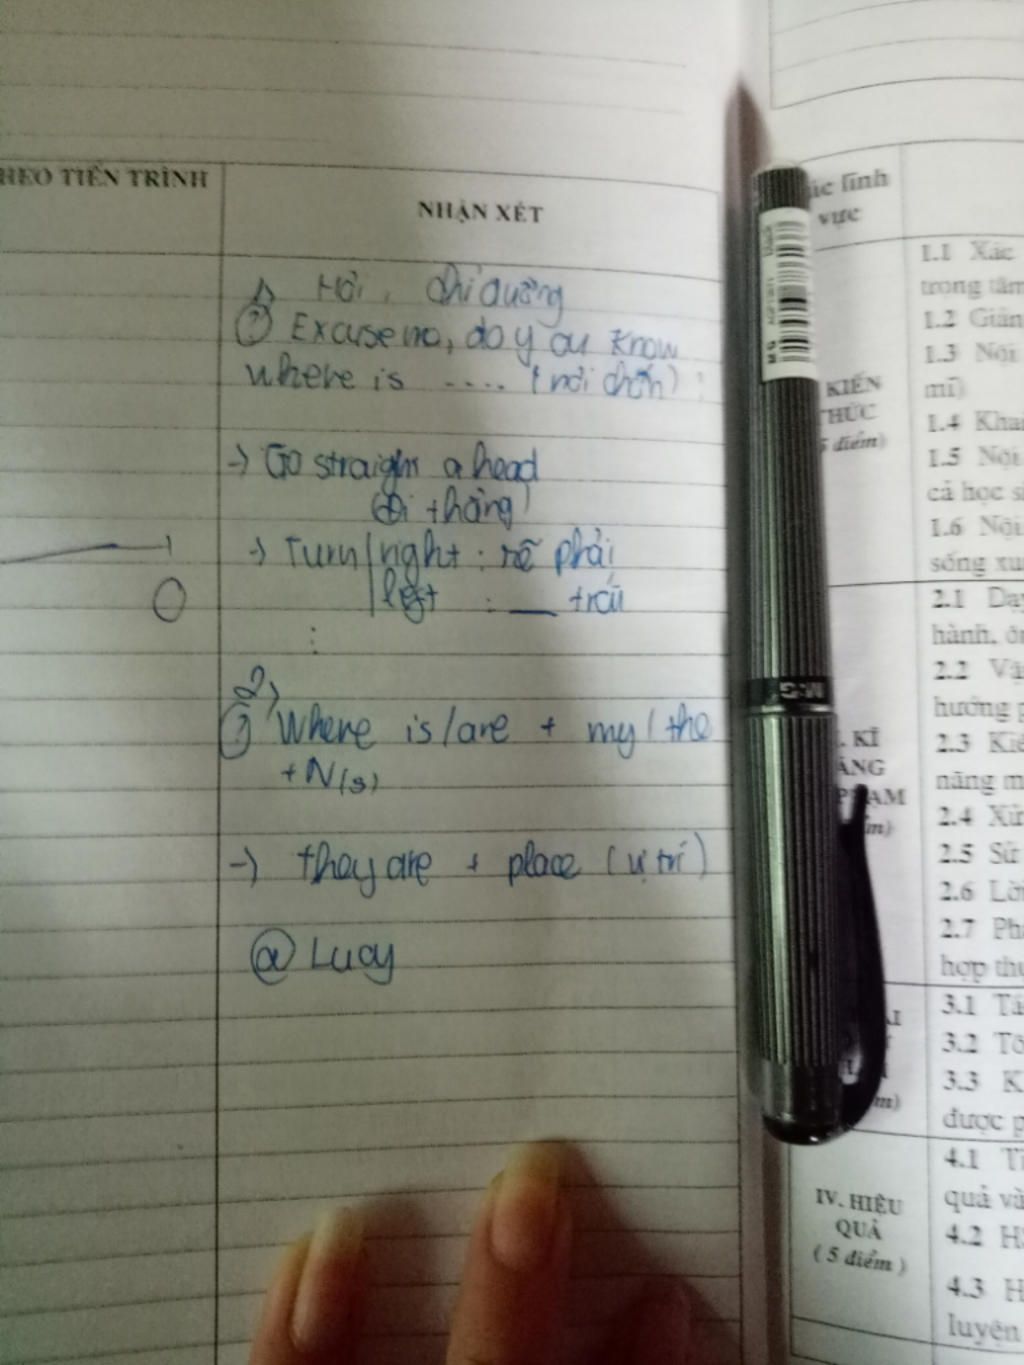 HEO TIẾN TRÌNH
NHẬN XÉT
1, Hỏi, chỉ đường
? Excuse me, do you know
where is .... (nơi chốn) ?
→ Go straight ahead
(đi thẳng)
→ Turn right : rẽ phải
left : __ trái
:
2,
? Where is / are + my / the
+ N(s)
→ they are + place (vị trí)
@ Lucy
lĩnh
vực
KIẾN
THỨC
điểm)
1.1 Xác
trọng tâm
1.2 Giản
1.3 Nội
mĩ)
1.4 Khai
1.5 Nội
cả học s
1.6 Nội
sống xu
KĨ
2.1 Dạy
hành, ôn
2.2 Vậ
hướng p
2.3 Kiể
năng m
2.4 Xử
2.5 Sử
2.6 Lời
2.7 Phâ
hợp thu
M&G
3.1 Tá
3.2 Tổ
3.3 K
được p
IV. HIỆU
QUẢ
( 5 điểm )
4.1 Ti
quả và
4.2 H
4.3 H
luyện